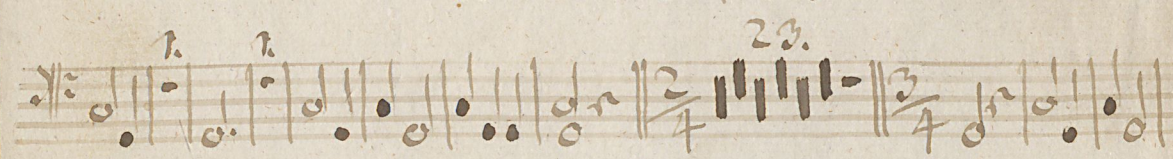 1. 1. 23.
2/4 3/4